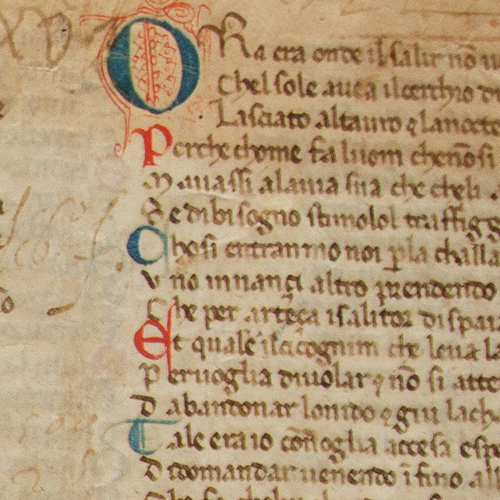 ORa era onde il salir nō u
Chel sole auea il cerchio d
Lasciato al tauro ꝯ la nocte
Perche chome fa luom che nōsi
Mauassi alauia sua che cheli
Se dibisogno stimolol traffigg
Chosi entrammo noi ꝑla challa
Vno innançi altro prendendo
Che per arteça i salitor dispai
Et quale ilcicognin che leua la
Peruoglia diuolar ꝯ nō si atte
Dabandonar lonido ꝯ giu lach
Tale era io cō uoglia accesa espe
Ddomandar uenendo ī fino al